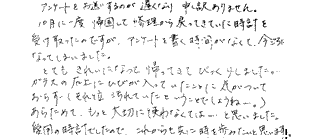 アンケートをお返しするのが遅くなり申し訳ありません。
10月に一度帰国して修理から戻ってきていた時計を
受け取ったのですが、アンケートを書く時間がなくて、今ごろに
なってしまいました。
とてもきれいになって帰ってきてびっくりしました。
ガラスの底上にひびが入っていたことに気がついて
おらず(それ位汚れていたというコトでしょうねー。)
あらためて、もっと大切に使わなくては…と思いました。
祖国の時計でしたので、これからも共に時を歩みたいと思います!!